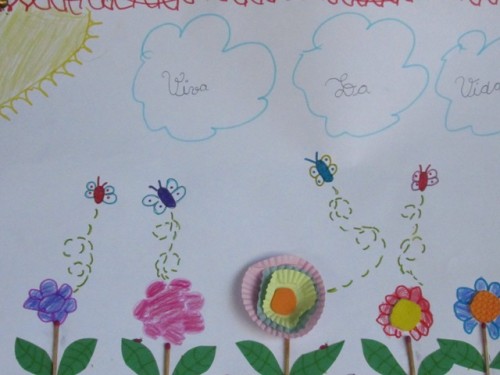 Viva
Lea
Vida